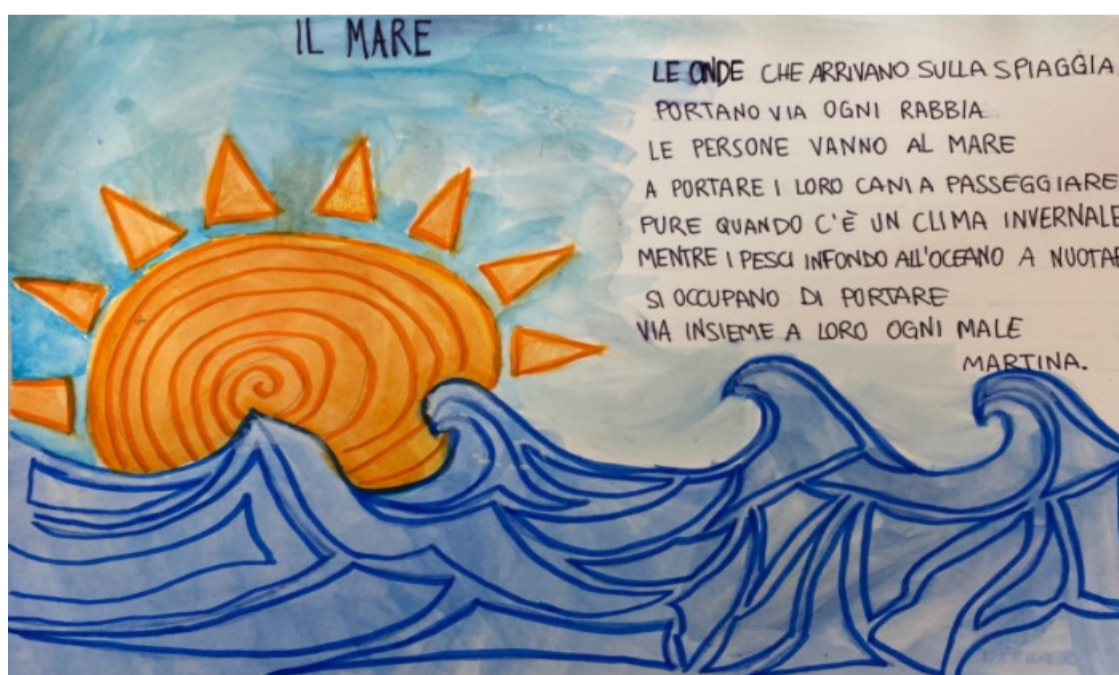 IL MARE
LE ONDE CHE ARRIVANO SULLA SPIAGGIA
PORTANO VIA OGNI RABBIA
LE PERSONE VANNO AL MARE
A PORTARE I LORO CANI A PASSEGGIARE
PURE QUANDO C'È UN CLIMA INVERNALE
MENTRE I PESCI INFONDO ALL'OCEANO A NUOTAR
SI OCCUPANO DI PORTARE
VIA INSIEME A LORO OGNI MALE
MARTINA.